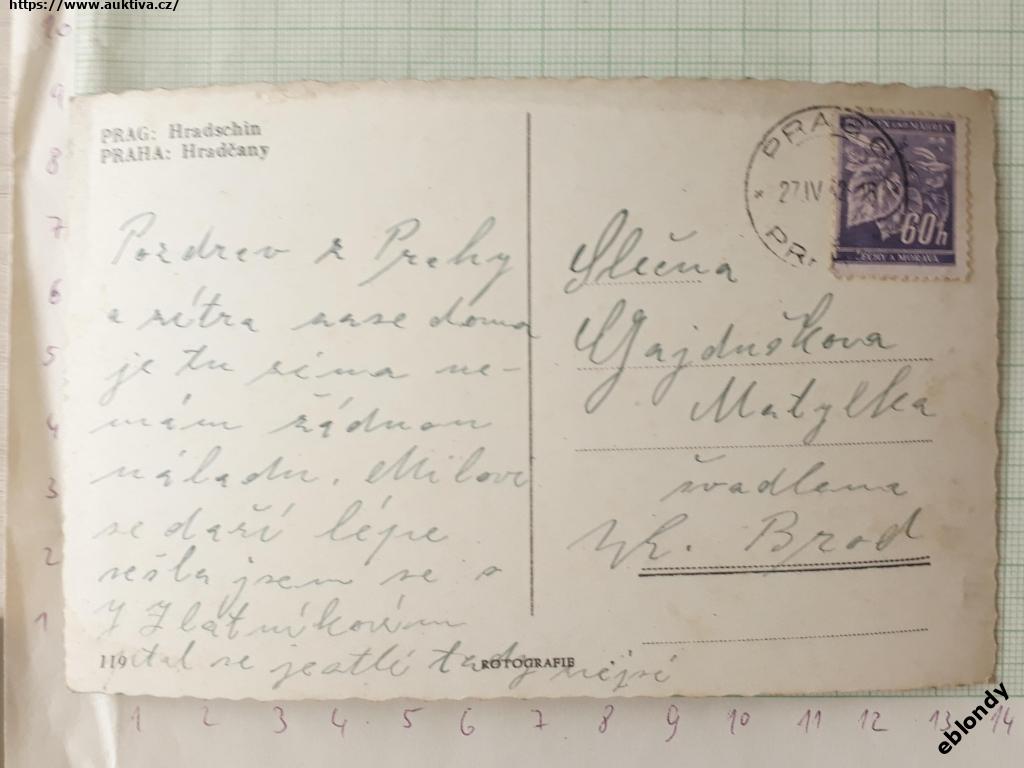 https://www.auktiva.cz/
PRAG: Hradschin
PRAHA: Hradčany
Pozdrav z Prahy
a zítra zase doma
je tu zima ne-
mám žádnou
náladu. Milovi
se daří lépe
sešla jsem se s
J Zlátníkovým
ptal se jestli tady nejsi
119
ROTOGRAFIE
Slečna
Gajdušková
Matylka
švadlena
Uh. Brod
PRAG
27.IV
60h
ČECHY A MORAVA
10
9
8
7
6
5
4
3
2
1
1 2 3 4 5 6 7 8 9 10 11 12 13 14
eblondy